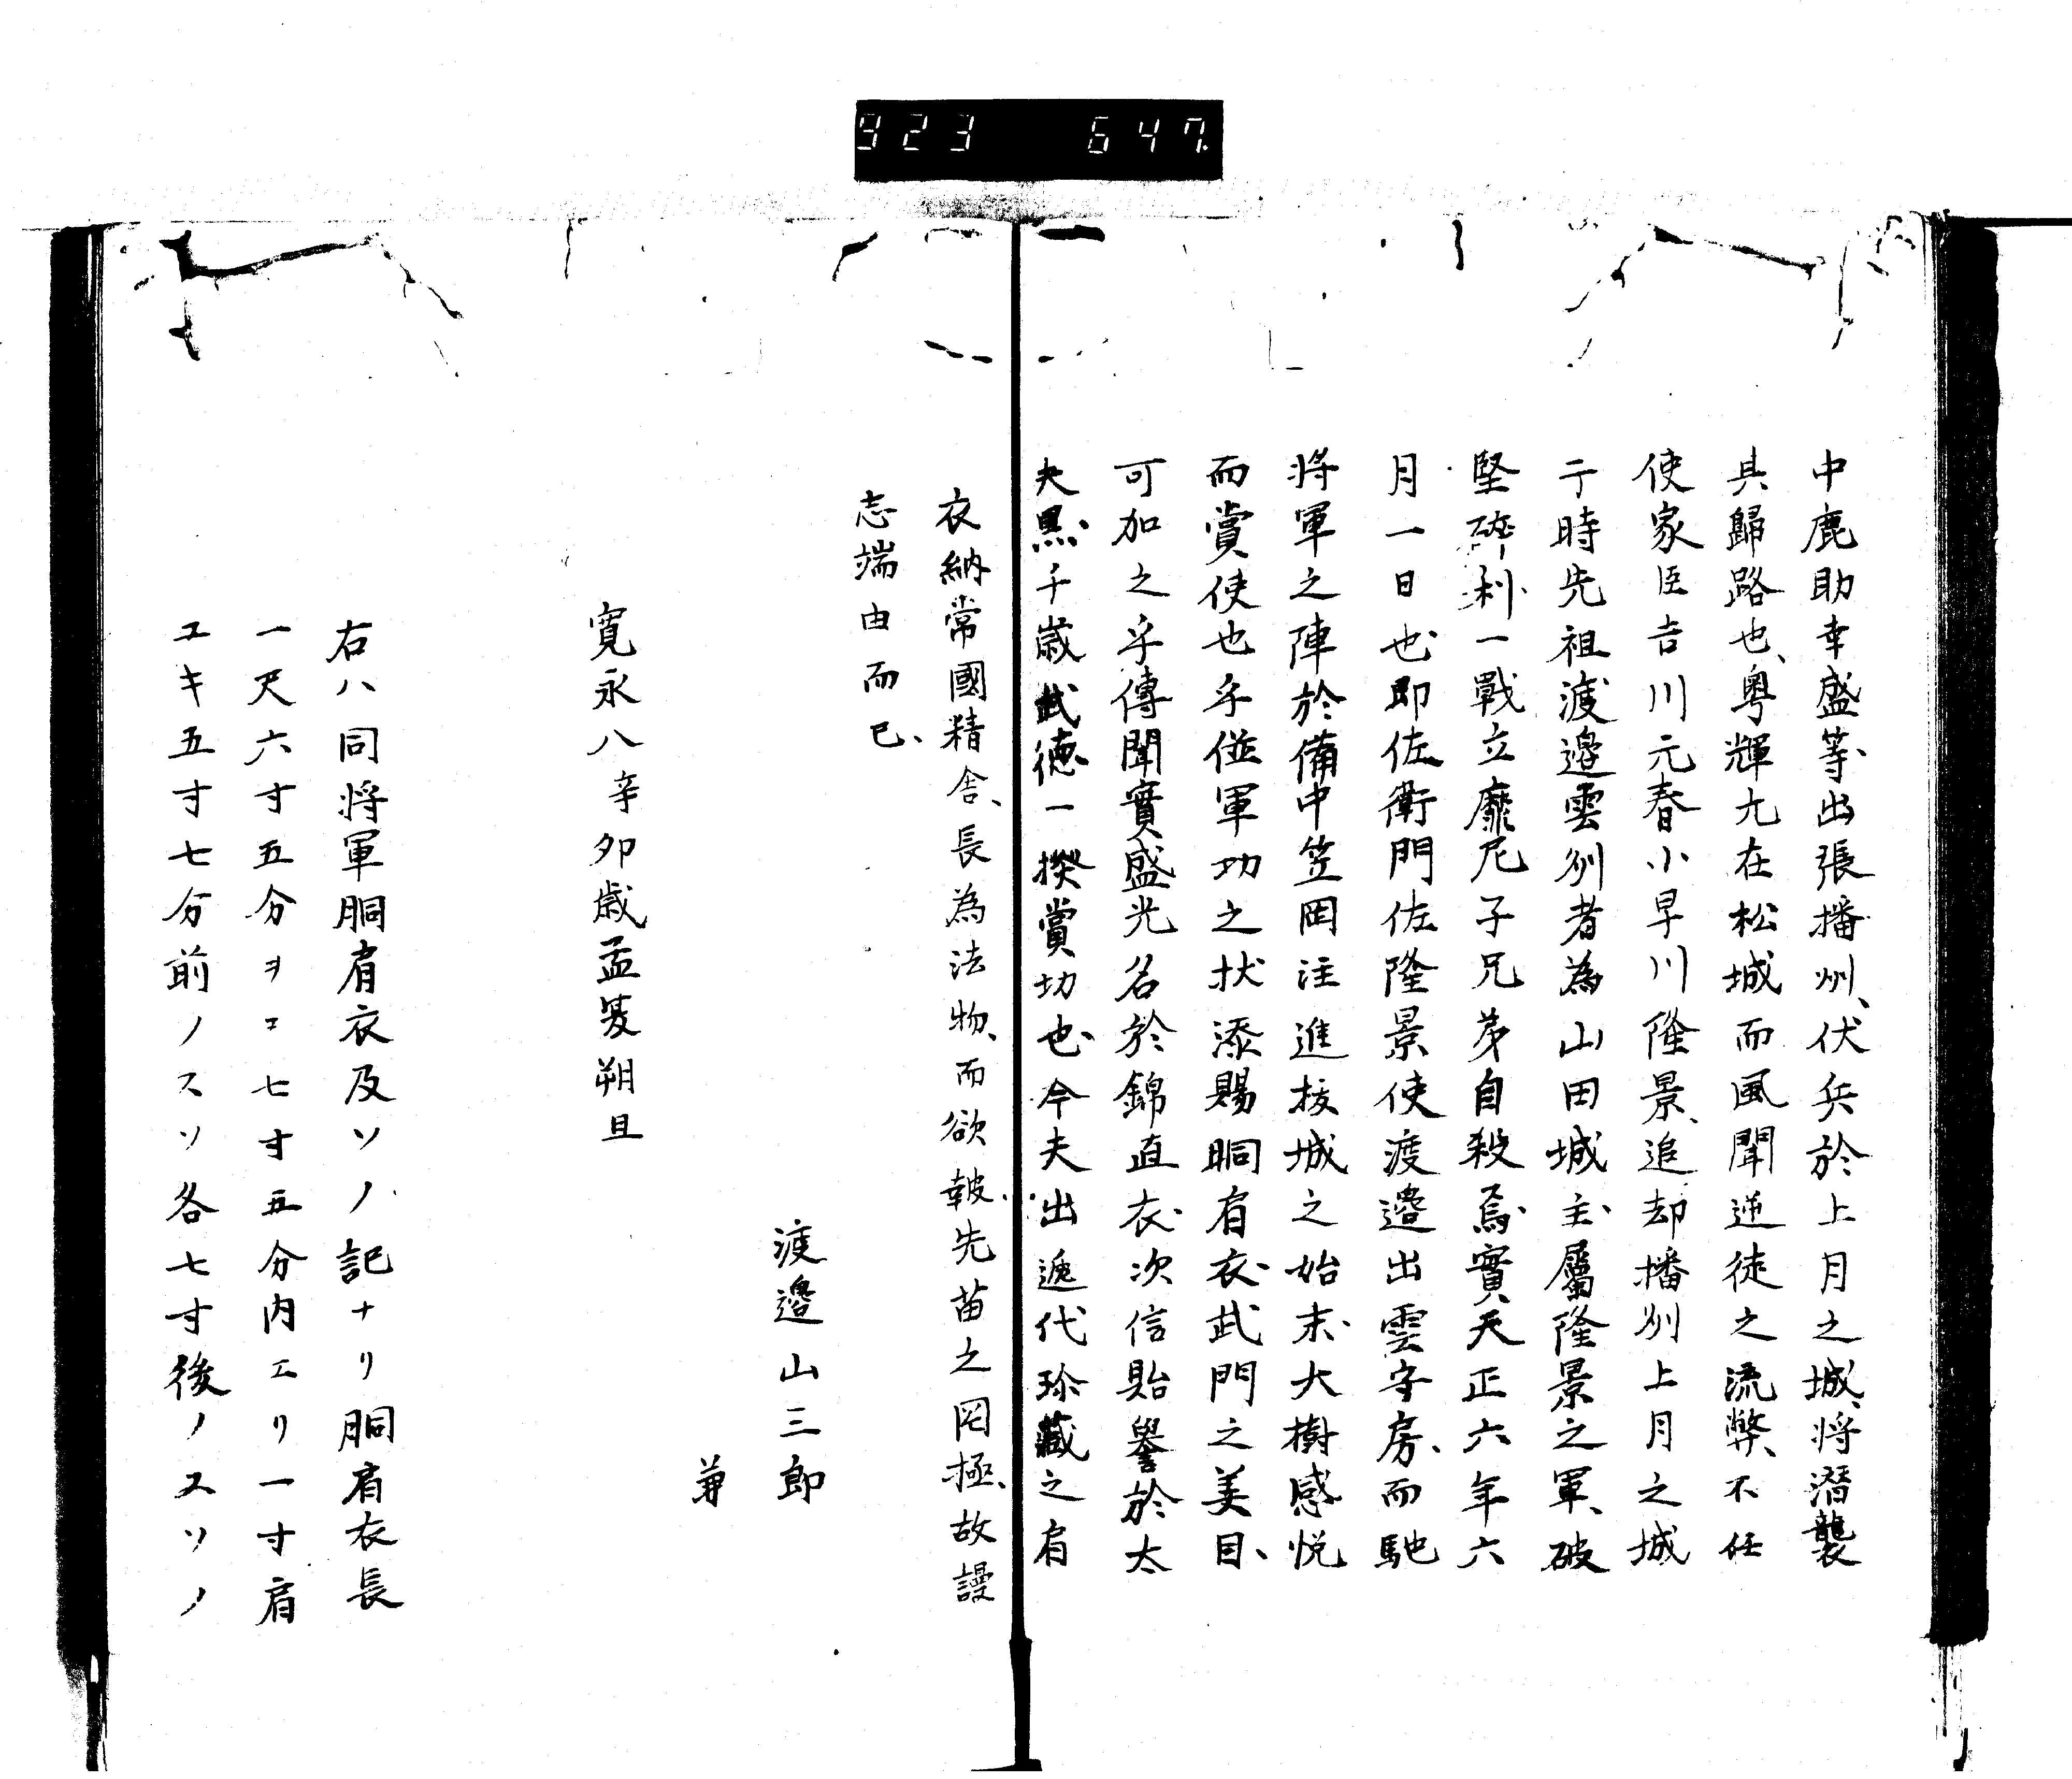 923 647.
中鹿助幸盛等、出張播州、伏兵於上月之城、将潜襲
其歸路也、粤輝元在松城而風聞逆徒之流弊、不任
使家臣吉川元春小早川隆景、追却播州上月之城
于時先祖渡邉雲州者為山田城主、屬隆景之軍、破
堅碎利、一戰立靡尼子兄弟自殺焉、實天正六年六
月一日也、即佐衛門佐隆景使渡邉出雲守房、而馳
将軍之陣於備中笠岡注進抜城之始末、大樹感悦
而賞使也乎、併軍功之状添賜胴肩衣、武門之美目、
可加之乎、傳聞實盛光名於錦直衣、次信貽譽於太
夫黒、千歳武徳一揆賞功也、今夫出遞代珎藏之肩
衣納常國精舎、長為法物、而欲報先苗之罔極、故謾
志端由而已、
渡邉山三郎
兼
寛永八辛卯歳孟夏朔旦
右ハ同将軍胴肩衣及ソノ記ナリ胴肩衣長
一尺六寸五分ヨコ七寸五分内エリ一寸肩
ユキ五寸七分前ノスソ各七寸後ノスソノ